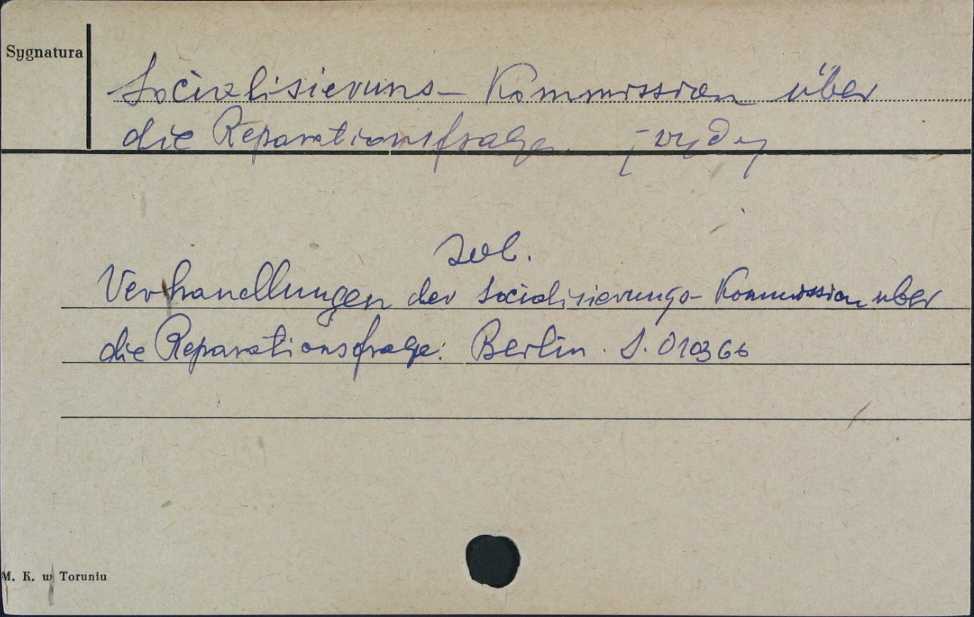 Sygnatura
Socializisieruns- Kommission über
die Reparationsfrage. - wyd.
zob.
Verhandlungen der Socialisierungs- Kommission uber
die Reparationsfrage: Berlin. S. 010366
M. K. w Toruniu